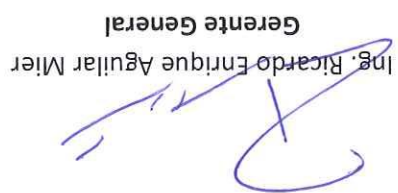 Ing. Ricardo Enrique Aguilar Mier
Gerente General